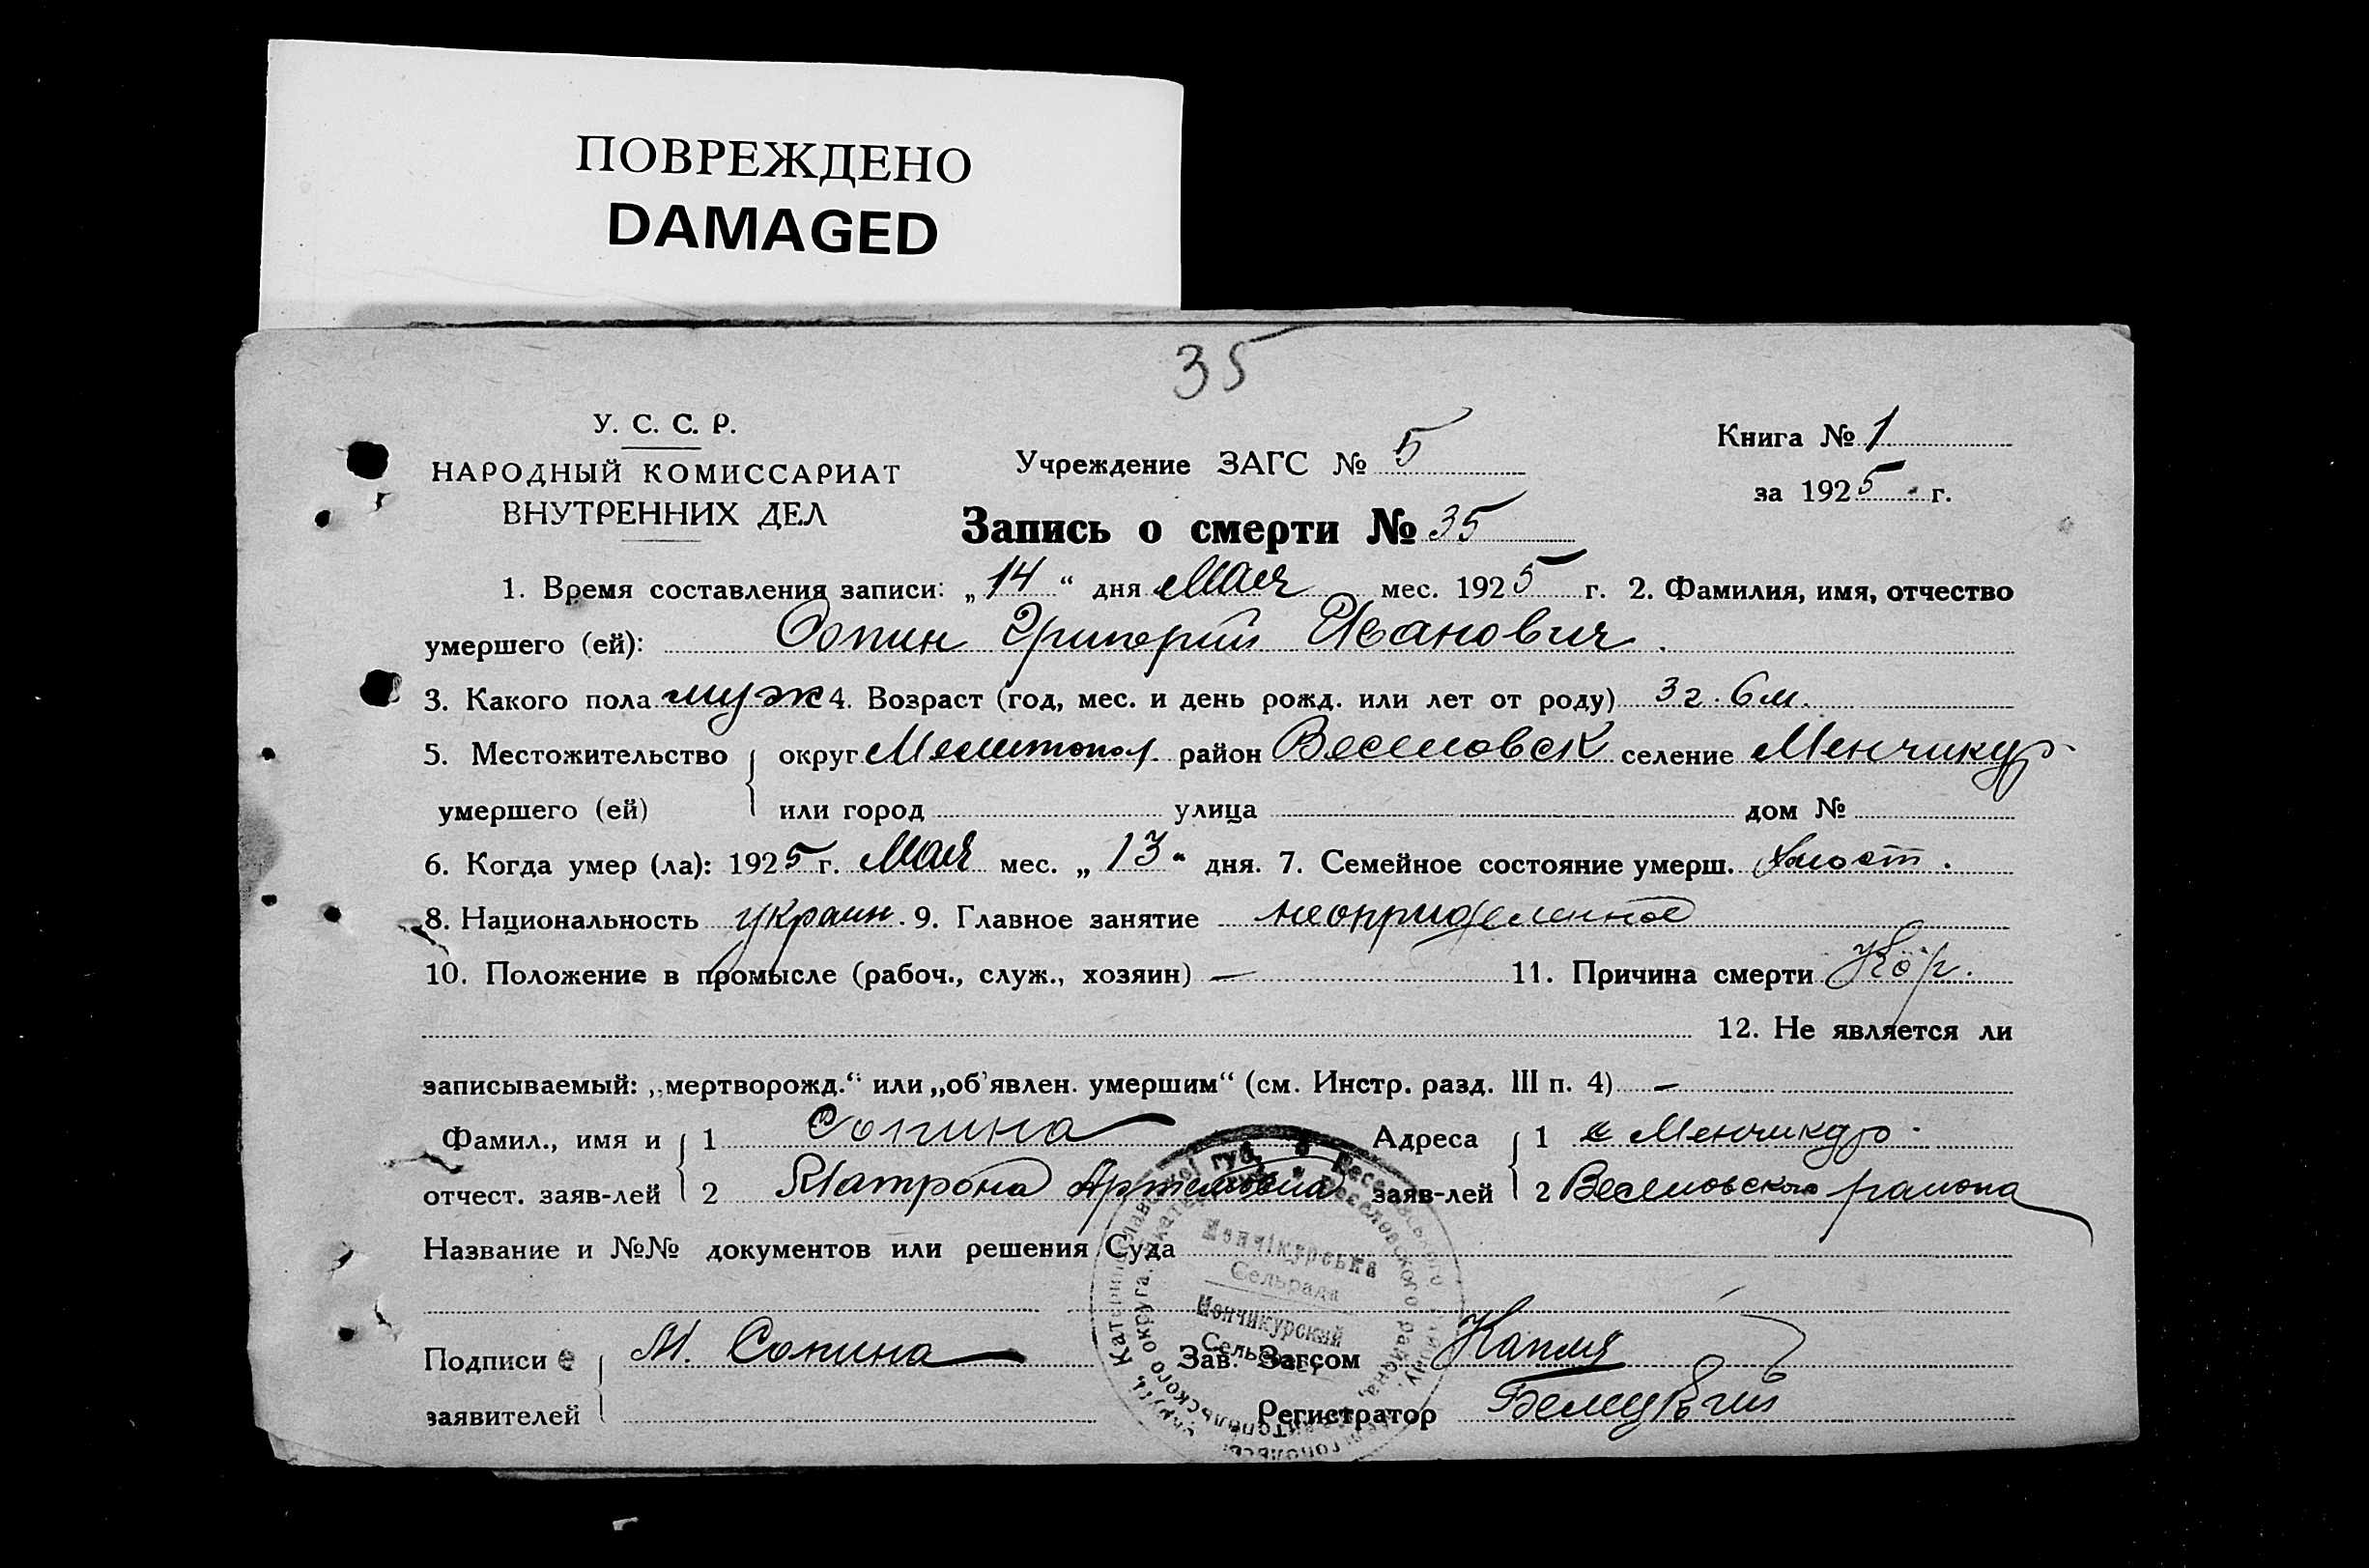 ПОВРЕЖДЕНО
DAMAGED
35
У. С. С. Р.
НАРОДНЫЙ КОМИССАРИАТ
ВНУТРЕННИХ ДЕЛ
Учреждение ЗАГС № 5
Книга № 1
за 1925 г.
Запись о смерти № 35
1. Время составления записи: „14“ дня Мая мес. 1925 г. 2. Фамилия, имя, отчество
умершего (ей): Сопин Григорий Иванович.
3. Какого пола муж 4. Возраст (год, мес. и день рожд. или лет от роду) 3 г. 6 м.
5. Местожительство округ Мелитопол. район Веселовск селение Менчикур
умершего (ей) или город улица дом №
6. Когда умер (ла): 1925 г. Мая мес. „13“ дня. 7. Семейное состояние умерш. холост.
8. Национальность украин. 9. Главное занятие неопределенное
10. Положение в промысле (рабоч., служ., хозяин) — 11. Причина смерти Кор.
12. Не является ли
записываемый: „мертворожд.“ или „об'явлен. умершим“ (см. Инстр. разд. III п. 4) —
Фамил., имя и 1 Сопина Адреса 1 с Менчикур
отчест. заяв-лей 2 Матрона Артемовна заяв-лей 2 Веселовского района
Название и №№ документов или решения Суда
Мончікурська
Сельрада
Мончикурский
Подписи М. Сопина Зав. Загсом Капля
заявителей Регистратор